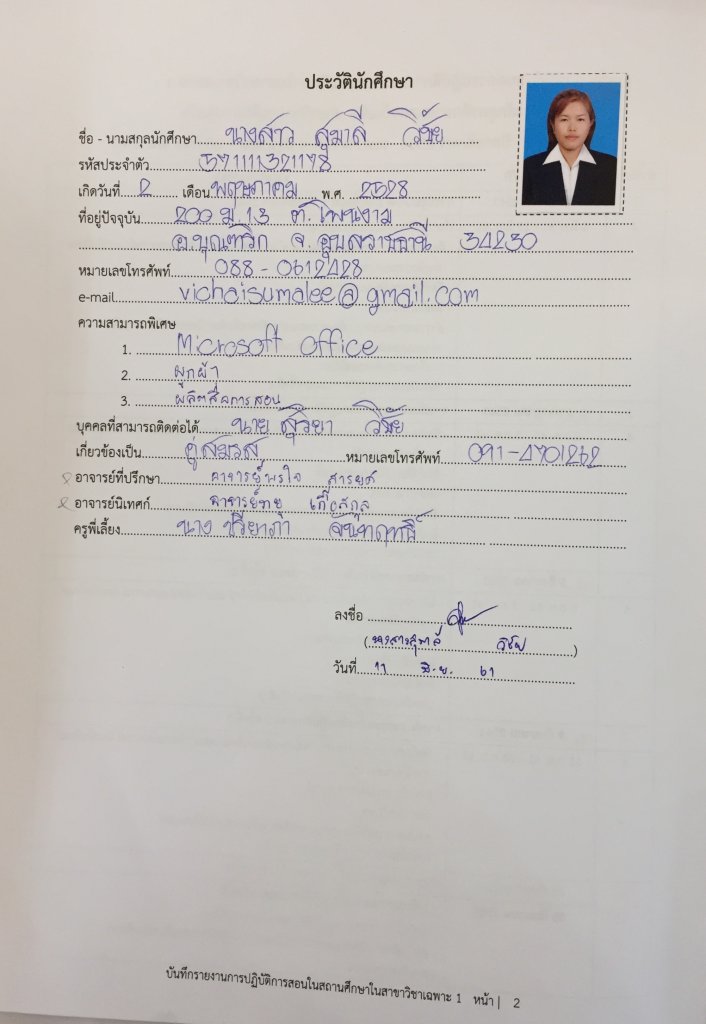 ประวัตินักศึกษา
ชื่อ - นามสกุลนักศึกษา นางสาว สุมาลี วิชัย
รหัสประจำตัว 571111321178
เกิดวันที่ 2 เดือน พฤษภาคม พ.ศ. 2528
ที่อยู่ปัจจุบัน 200 ม.13 ต.โพนงาม
อ.บุณฑริก จ.อุบลราชธานี 34230
หมายเลขโทรศัพท์ 088-0612428
e-mail vichaisumalee@gmail.com
ความสามารถพิเศษ
1. Microsoft office
2. ผูกผ้า
3. ผลิตสื่อการสอน
บุคคลที่สามารถติดต่อได้ นาย สุริยา วิชัย
เกี่ยวข้องเป็น คู่สมรส หมายเลขโทรศัพท์ 091-4701262
อาจารย์ที่ปรึกษา อาจารย์พรใจ สารยศ
อาจารย์นิเทศก์ อาจารย์
ครูพี่เลี้ยง นาง ปรียาภา จันทฤทธิ์
ลงชื่อ
(นางสาวสุมาลี วิชัย)
วันที่ 11 มิ.ย. 61
บันทึกรายงานการปฏิบัติการสอนในสถานศึกษาในสาขาวิชาเฉพาะ 1 หน้า | 2